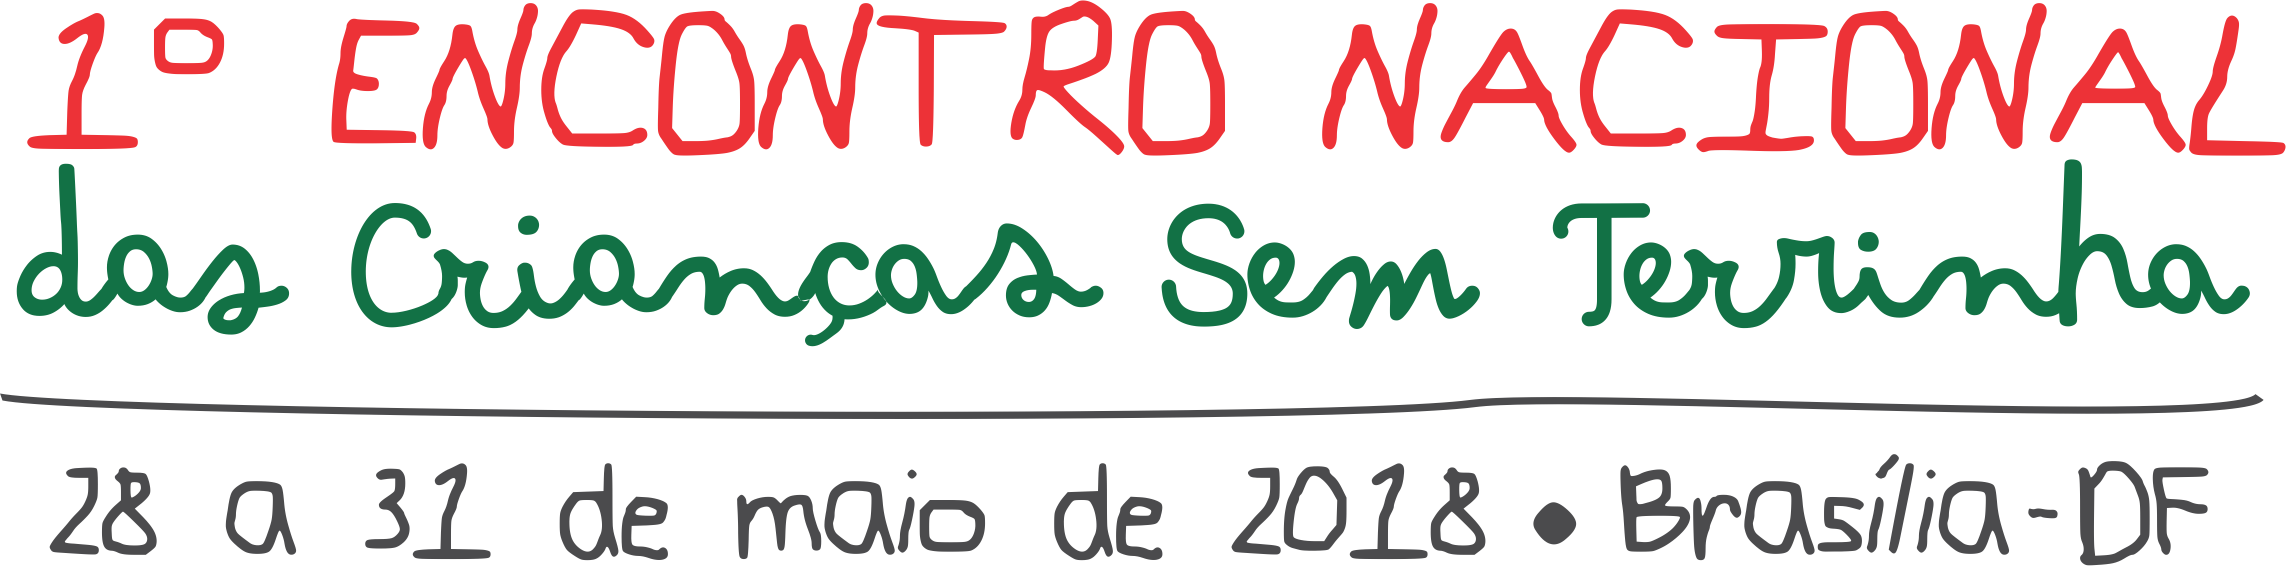 1º ENCONTRO NACIONAL
das Crianças Sem Terrinha
28 a 31 de maio de 2018 • Brasília-DF